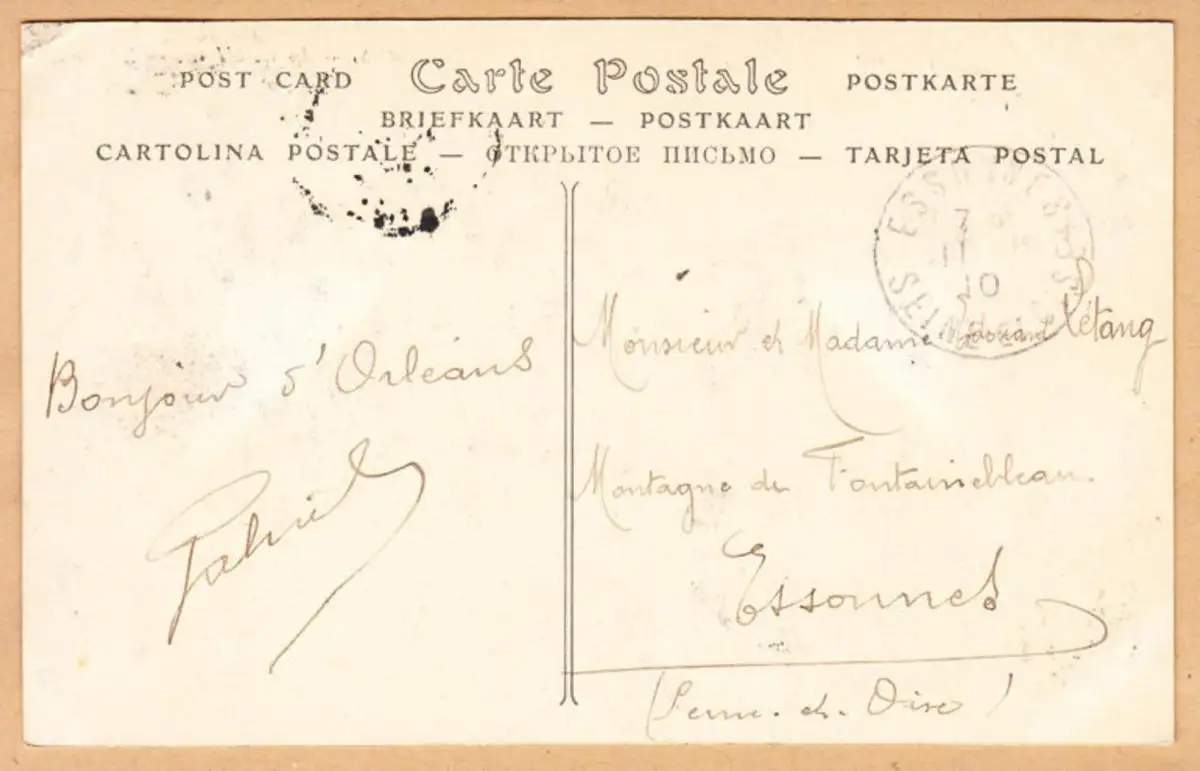 POST CARD Carte Postale POSTKARTE
BRIEFKAART — POSTKAART
CARTOLINA POSTALE — ОТКРЫТОЕ ПИСЬМО — TARJETA POSTAL
ESSONNES
7
11
10
SEINE
Monsieur et Madame Edouard Létang
Bonjour d'Orléans
Montagne de Fontainebleau.
Gabriel
Essonnes
(Seine-et-Oise)